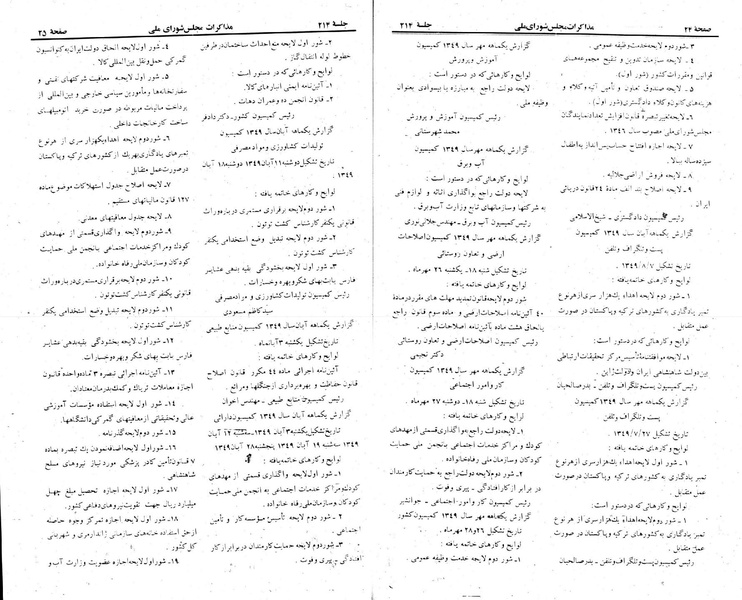 صفحهٔ ۲۴
مذاکرات مجلس شورای ملی
جلسهٔ ۲۱۳
۳ـ شور دوم لایحه خدمت وظیفه عمومی .
۴ـ لایحه سازمان تدوین و تنقیح مجموعه‌های
قوانین و مقررات کشور (شور اول).
۵ـ لایحه صندوق تعاون و تأمین آتیه وکلاء و
هزینه‌های کانون وکلاء دادگستری (شور اول).
۶ـ لایحه تغییر تبصره قانون افزایش تعداد نمایندگان
مجلس شورای ملی مصوب سال ۱۳۴۶ .
۷ـ لایحه اجازه افتتاح حساب پس‌انداز به اطفال
سیزده ساله ببالا.
۸ـ لایحه فروش اراضی جلالیه .
۹ـ لایحه اصلاح بند الف ماده ۲۴ قانون دریائی
ایران .
رئیس کمیسیون دادگستری ـ شیخ‌الاسلامی
گزارش یکماهه آبان سال ۱۳۴۹ کمیسیون
پست و تلگراف و تلفن
تاریخ تشکیل ۱۳۴۹/۸/۷ .
لوایح و کارهای خاتمه یافته :
۱ـ شور دوم لایحه اهداء یک هزار سری از هر نوع
تمبر یادگاری به کشورهای ترکیه و پاکستان در صورت
عمل متقابل .
لوایح و کارهائی که در دستور است :
۱ـ لایحه موافقتنامه تأسیس مرکز تحقیقات ارتباطی
بین دولت شاهنشاهی ایران و دولت ژاپن .
رئیس کمیسیون پست و تلگراف و تلفن ـ بدر صالحیان
گزارش یکماهه مهر سال ۱۳۴۹ کمیسیون
پست و تلگراف و تلفن
تاریخ تشکیل ۱۳۴۹/۷/۲۷ .
لوایح و کارهای خاتمه یافته :
۱ـ شور اول لایحه اهداء یک هزار سری از هر نوع
تمبر یادگاری به کشورهای ترکیه و پاکستان در صورت
عمل متقابل .
لوایح و کارهائی که در دستور است :
۱ـ شور دوم لایحه اهداء یک هزار سری از هر نوع
تمبر یادگاری به کشورهای ترکیه و پاکستان در صورت
عمل متقابل .
رئیس کمیسیون پست و تلگراف و تلفن ـ بدر صالحیان
گزارش یکماهه مهر سال ۱۳۴۹ کمیسیون
آموزش و پرورش
لوایح و کارهائی که در دستور است :
لایحه دولت راجع به مبارزه با بیسوادی بعنوان
وظیفه ملی .
رئیس کمیسیون آموزش و پرورش
محمد شهرستانی
گزارش یکماهه مهر سال ۱۳۴۹ کمیسیون
آب و برق
لوایح و کارهائی که در دستور است :
لایحه دولت راجع بواگذاری اثاثه و لوازم فنی
به شرکتها و سازمانهای تابع وزارت آب و برق .
رئیس کمیسیون آب و برق ـ مهندس جلالی نوری
گزارش یکماهه مهر سال ۱۳۴۹ کمیسیون اصلاحات
ارضی و تعاون روستائی
تاریخ تشکیل شنبه ۱۸ـ یکشنبه ۲۶ مهرماه .
لوایح و کارهای خاتمه یافته :
شور دوم لایحه قانون تمدید مهلت های مقرر در ماده
۴۰ آئین‌نامه اصلاحات ارضی و ماده سوم قانون راجع
بالحاق هشت ماده بآئین‌نامه اصلاحات ارضی .
رئیس کمیسیون اصلاحات ارضی و تعاون روستائی
دکتر نجیمی
گزارش یکماهه مهر سال ۱۳۴۹ کمیسیون
کار و امور اجتماعی
تاریخ تشکیل شنبه ۱۸ـ دوشنبه ۲۷ مهرماه .
لوایح و کارهای خاتمه یافته :
۱ـ لایحه دولت راجع بواگذاری قسمتی از مهدهای
کودک و مراکز خدمات اجتماعی به انجمن ملی حمایت
کودکان و سازمان ملی رفاه خانواده .
۲ـ شور دوم لایحه دولت راجع به حمایت کارمندان
در برابر از کارافتادگی ـ پیری و فوت .
رئیس کمیسیون کار و امور اجتماعی ـ جوانشیر
گزارش یکماهه مهر سال ۱۳۴۹ کمیسیون کشور
تاریخ تشکیل ۲۶ و ۲۸ مهرماه .
لوایح و کارهای خاتمه یافته :
۱ـ شور دوم لایحه خدمت وظیفه عمومی .
جلسهٔ ۲۱۳
مذاکرات مجلس شورای ملی
صفحهٔ ۲۵
۲ـ شور اول لایحه منع احداث ساختمان در طرفین
خطوط لوله انتقال گاز .
لوایح و کارهائی که در دستور است :
۱ـ آئین‌نامه ایمنی انبارهای کالا .
۲ـ قانون انجمن ده و عمران دهات .
رئیس کمیسیون کشور ـ دکتر دادفر
گزارش یکماهه آبان سال ۱۳۴۹ کمیسیون
تولیدات کشاورزی و مواد مصرفی
تاریخ تشکیل دوشنبه ۱۱ آبان ۱۳۴۹ دوشنبه ۱۸ آبان
۱۳۴۹ .
لوایح و کارهای خاتمه یافته :
۱ـ شور دوم لایحه برقراری مستمری درباره وراث
قانونی یکنفر کارشناس کشت توتون .
۲ـ شور دوم لایحه تبدیل وضع استخدامی یکنفر
کارشناس کشت توتون .
۳ـ شور اول لایحه بخشودگی بقیه بدهی عشایر
فارس بابت بهای شکر و بهره و خسارات .
رئیس کمیسیون تولیدات کشاورزی و مواد مصرفی
سید کاظم مسعودی
گزارش یکماهه آبان سال ۱۳۴۹ کمیسیون منابع طبیعی
تاریخ تشکیل یکشنبه ۳ آبانماه .
لوایح و کارهای خاتمه یافته :
آئین‌نامه اجرائی ماده ۴۴ مکرر قانون اصلاح
قانون حفاظت و بهره‌برداری از جنگلها و مراتع .
رئیس کمیسیون منابع طبیعی ـ مهندس اخوان
گزارش یکماهه آبان سال ۱۳۴۹ کمیسیون دارائی
تاریخ تشکیل یکشنبه ۳ آبان ۱۳۴۹ـ سه‌شنبه ۱۲ آبان
۱۳۴۹ سه‌شنبه ۱۹ آبان ۱۳۴۹ پنجشنبه ۲۸ آبان ۱۳۴۹
لوایح و کارهای خاتمه یافته :
۱ـ شور اول لایحه واگذاری قسمتی از مهدهای
کودک و مراکز خدمات اجتماعی به انجمن ملی حمایت
کودکان و سازمان ملی رفاه خانواده .
۲ـ شور دوم لایحه تأسیس مؤسسه کار و تأمین
اجتماعی .
۳ـ شور دوم لایحه حمایت کارمندان در برابر از کار
افتادگی پیری و فوت .
۴ـ شور اول لایحه الحاق دولت ایران به کنوانسیون
گمرکی حمل و نقل بین‌المللی کالا .
۵ـ شور اول لایحه معافیت شرکتهای نفتی و
سفارتخانه‌ها و مأمورین سیاسی خارجی و بین‌المللی از
پرداخت مالیات مربوطه در صورت خرید اتومبیلهای
ساخت کارخانجات داخلی .
۶ـ شور دوم لایحه اهداء یکهزار سری از هر نوع
تمبرهای یادگاری به هریک از کشورهای ترکیه و پاکستان
در صورت عمل متقابل .
۷ـ لایحه اصلاح جدول استهلاکات موضوع ماده
۱۲۷ قانون مالیاتهای مستقیم .
۸ـ لایحه جدول معافیتهای معدنی .
۹ـ شور دوم لایحه واگذاری قسمتی از مهدهای
کودک و مراکز خدمات اجتماعی بانجمن ملی حمایت
کودکان و سازمان ملی رفاه خانواده .
۱۰ـ شور دوم لایحه برقراری مستمری درباره وراث
قانونی یکنفر کارشناس کشت توتون .
۱۱ـ شور دوم لایحه تبدیل وضع استخدامی یکنفر
کارشناس کشت توتون .
۱۲ـ شور اول لایحه بخشودگی بقیه بدهی عشایر
فارس بابت بهای شکر و بهره و خسارات .
۱۳ـ آئین‌نامه اجرائی تبصره ۳ ماده واحده قانون
اجازه معاملات تریاک و کمک بدرمان معتادان .
۱۴ـ شور اول لایحه استفاده مؤسسات آموزشی
عالی و تحقیقاتی از معافیتهای گمرکی دانشگاهها .
۱۵ـ شور دوم لایحه گذرنامه .
۱۶ـ شور اول لایحه اضافه نمودن یک تبصره بماده
۷ قانون تأمین کادر پزشکی مورد نیاز نیروهای مسلح
شاهنشاهی .
۱۷ـ شور اول لایحه اجازه تحصیل مبلغ چهل
میلیارد ریال جهت تقویت نیروهای دفاعی کشور .
۱۸ـ شور اول لایحه اجازه تمرکز وجوه حاصله
از حق استفاده خانه‌های سازمانی ژاندارمری و شهربانی
کل کشور .
۱۹ـ شور اول لایحه اجازه عضویت وزارت آب و